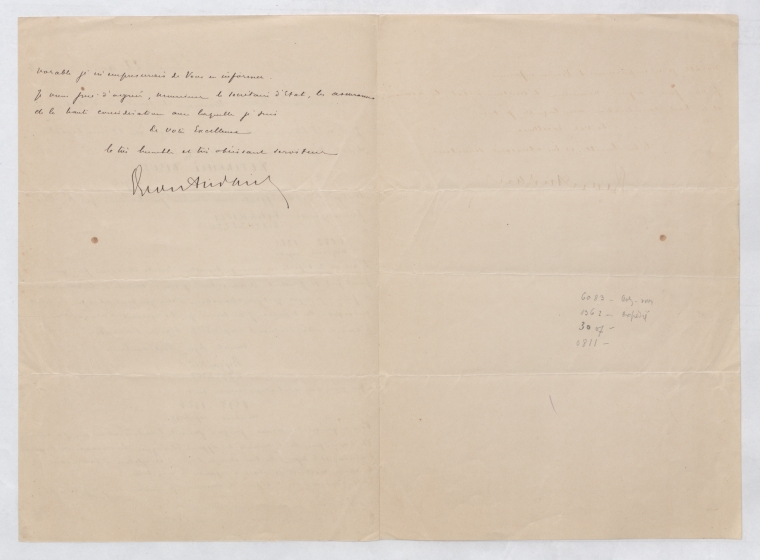 vorable je m'empresserais de Vous en informer.
Je vous prie d'agréer, Monsieur le Secrétaire d'Etat, les assurances
de la haute considération avec laquelle je suis
de Votre Excellence
le très humble et très obéissant serviteur
6083 -
1262 -
30
1811 -